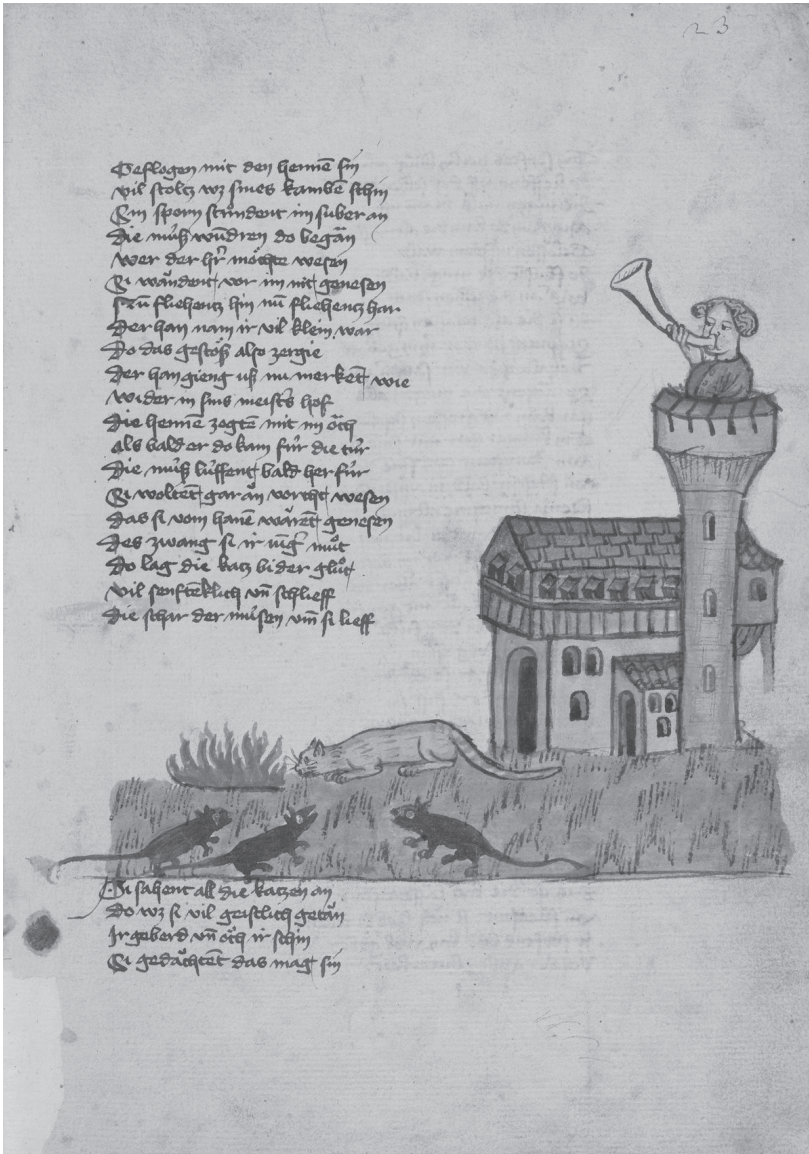 23
Geflogen mit den hennē sin
vil stoltz wz sines kambē schin
Sin sporn stůndent im suber an
die mu̍ß wūdren do began
wer der hr̄ mȯchte wesen
Si wa̍ndent vor im nit genesen
Nū fliehentz hin nū fliehentz har
Der han nam ir vil klein war
Do das gestȯß also zergie
Der han gieng uß nu merkēt wie
wider in sins meist's hof
die hennē zogtē mit im ȯch
als bald er do kam fu̍r die tu̍r
Die mu̍ß lu̍ffent bald herfu̍r
Si woltēt gar ān vorcht wesen
das si vom hanē wa̍rēt genesen
des zwang si ir můt
do lag die katz bi der glůt
vil senftēklich vn̄ schlieff
die schar der mu̍sen vm̄ si lieff
Si sahent all die katzen an
do wz si vil geistlich getān
Ir geberd vn̄ ȯch ir schin
Si geda̍chtēt das mag sin